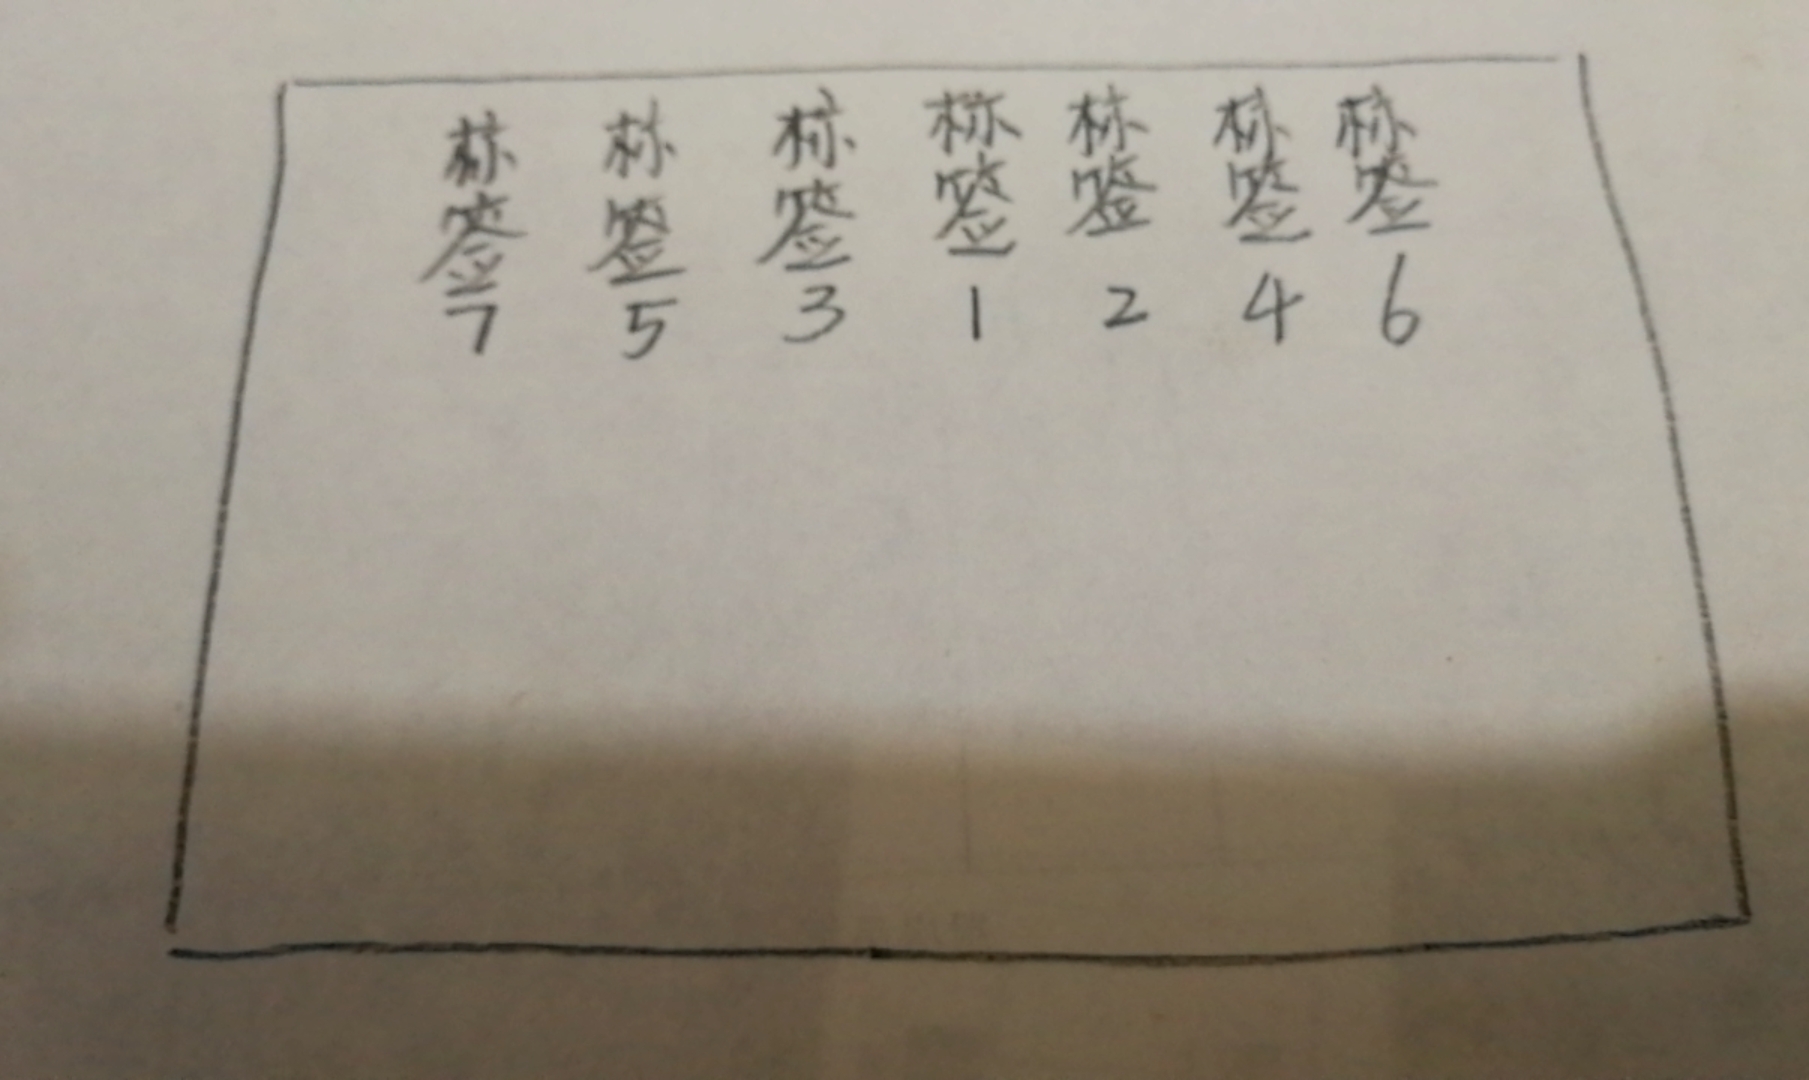 标签7
标签5
标签3
标签1
标签2
标签4
标签6